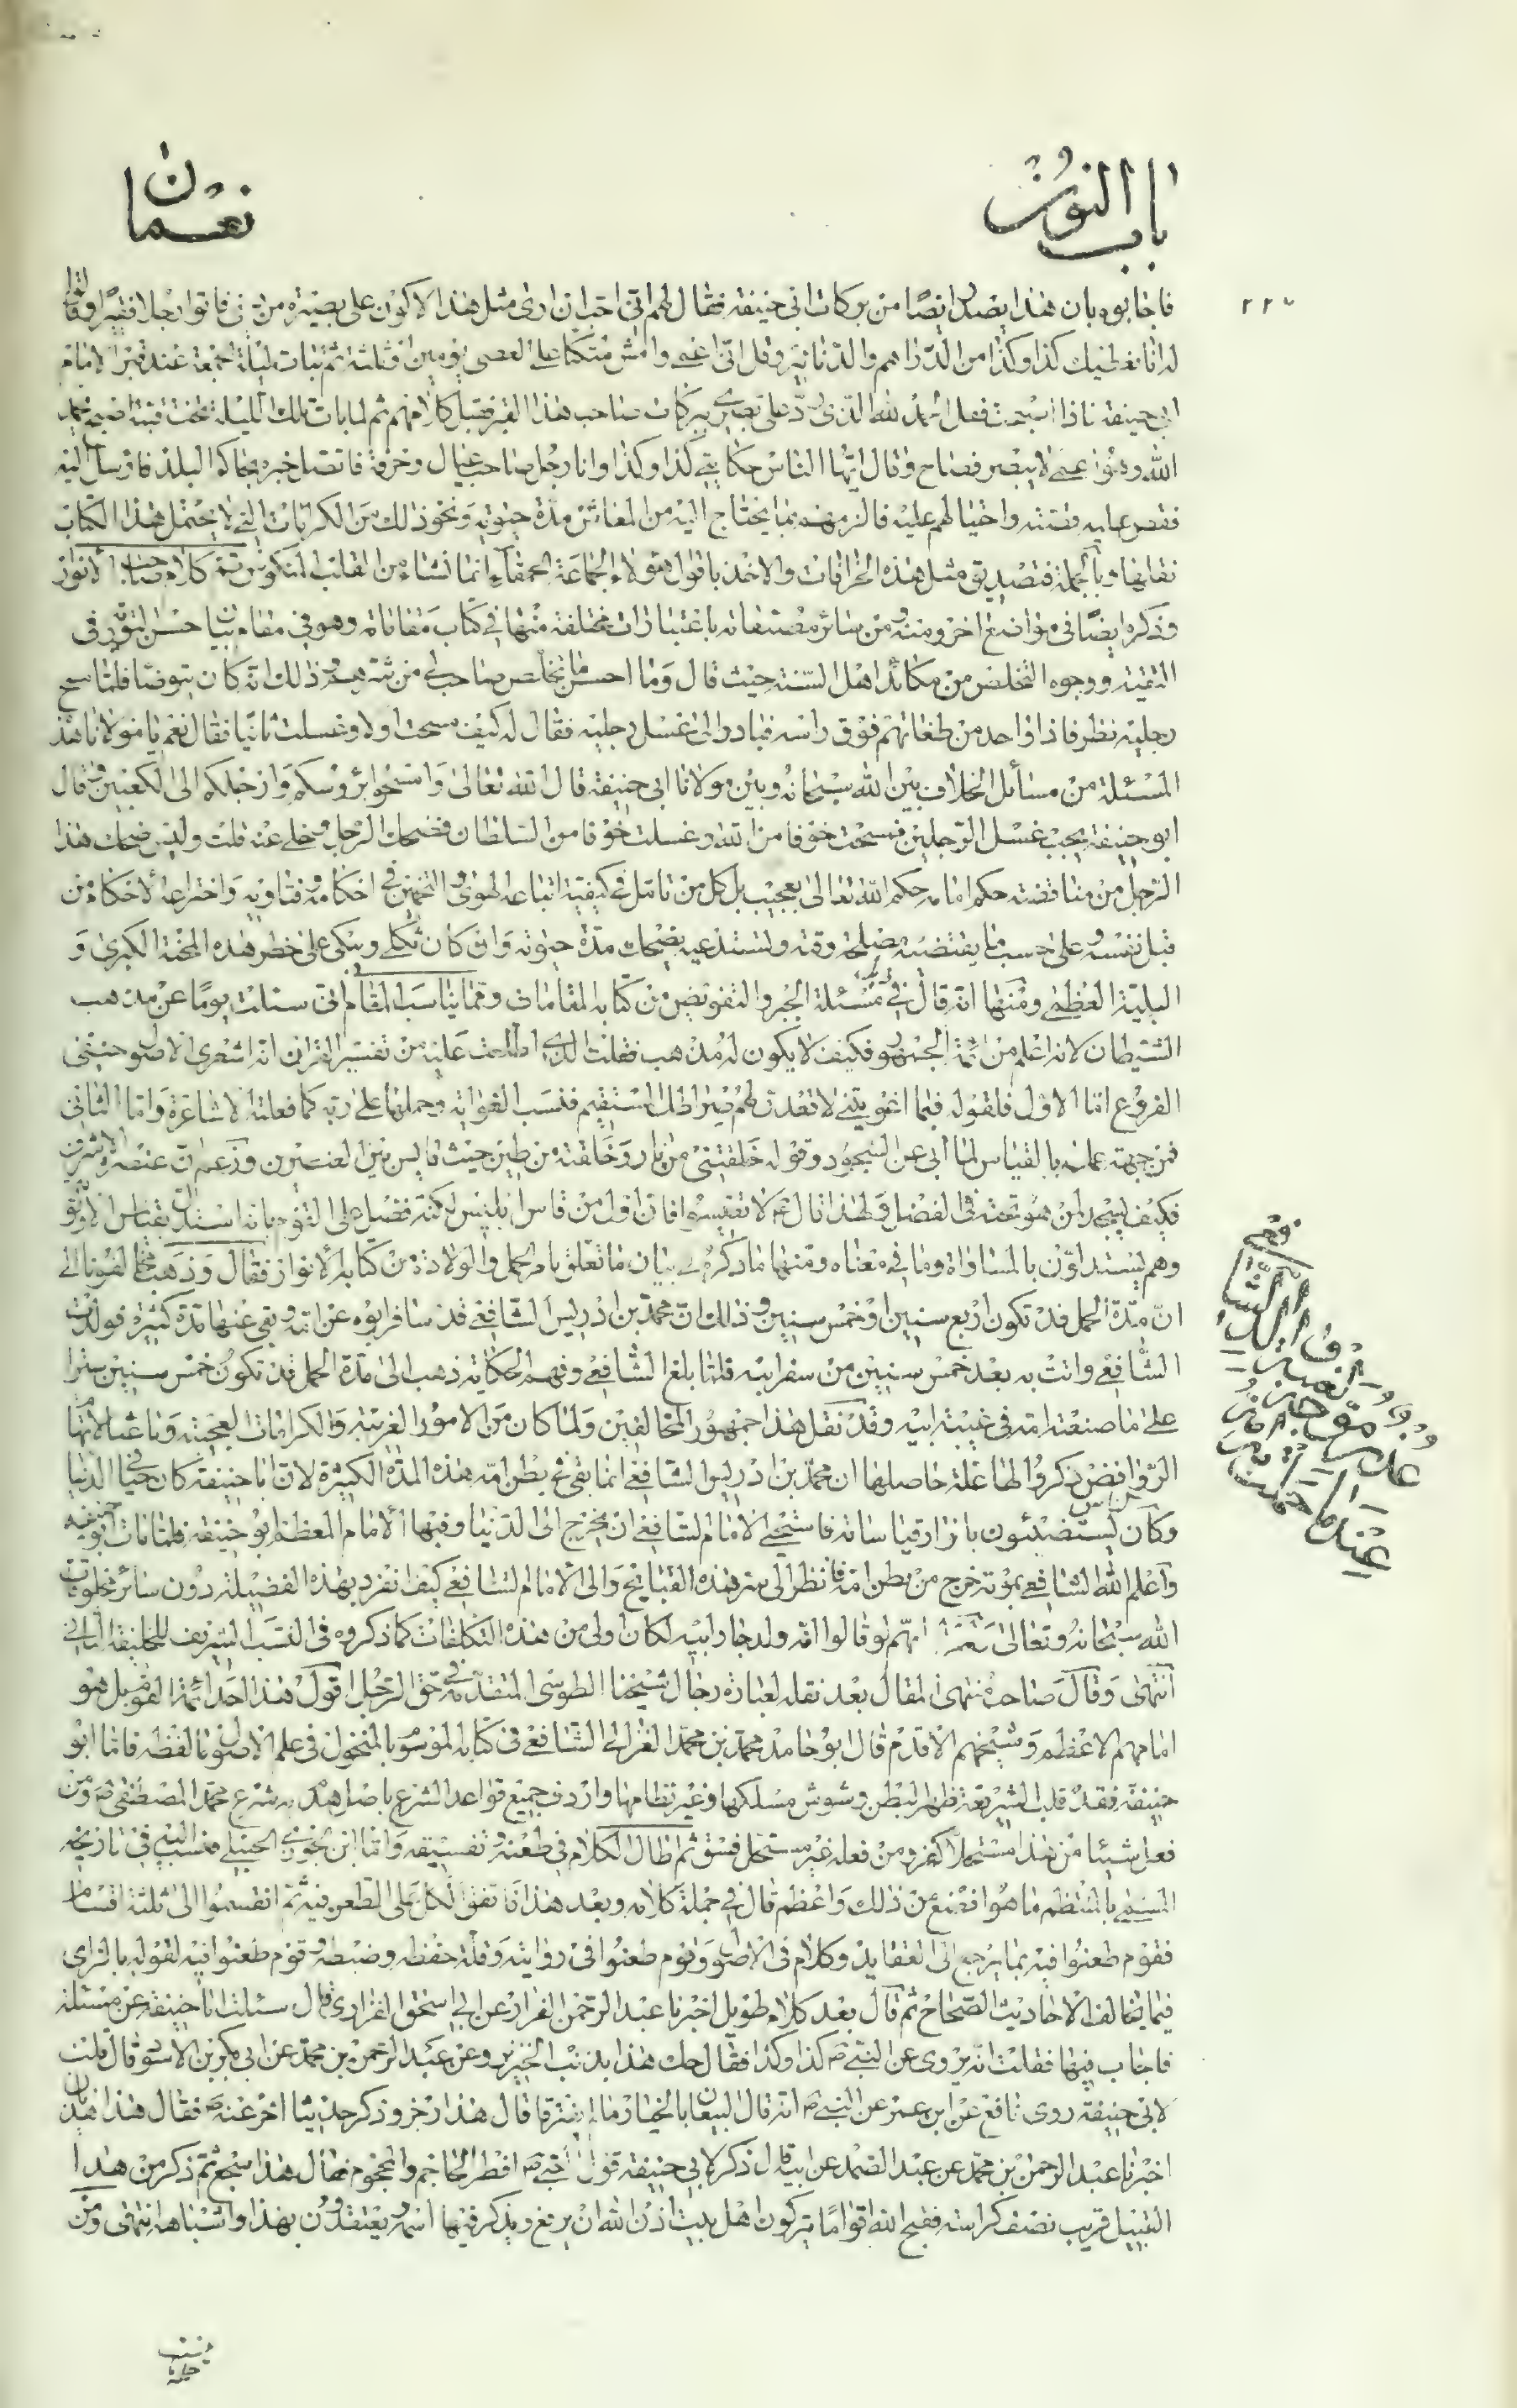 باب النون
نعمان
٢٢٧
فاجابوه بان هذا يضر ايضا من بركات ابي حنيفة فقال لهم اني احب ان ارى مثل هذا لاكون على بصيرة من فاتوا رجلا فقيرا وقالوا
له انا نعطيك كذا وكذا من الدراهم والدنانير وقل اني اعمى وامش متكئا على العصى يومين او ثلثة ثم تبات ليلة الجمعة عند قبر الامام
ابي حنيفة فاذا اصبحت فقل الحمد لله الذي رد علي بصري ببركات صاحب هذا القبر فقبل كلامهم ثم لما بات تلك الليلة تحت قبته اصبح بحمد
الله وهو اعمى لا يبصر فصاح وقال ايها الناس حكايتي كذا وكذا وانا رجل صاحب عيال وحرفة فاتصل خبره بحاكم البلد فارسل اليه
فقص عليه قصته واحتيالهم عليه فالزمهم بما يحتاج اليه من المعاش مدة حيوته ونحو ذلك من الكرامات التي لا يحتمل هذا الكتاب
نقلها وبالجملة فتصديق مثل هذه الخرافات والاخذ باقوال هؤلاء الجماعة الحمقاء انما نشاء من القلب المنكوس تم كلام صاحب الانوار
وذكر ايضا في مواضع اخر ومنه ومن سائر مصنفاته باعتبارات مختلفة منها في كتاب مقاماته وهو في مقام بيان حسن التورية في
التقية ووجوه التخلص من مكائد اهل السنة حيث قال وما احسن ما تخلص صاحب لي من شرهم وذلك انه كان يتوضا فلما مسح
رجليه نظر فاذا واحد من طغاتهم فوق راسه فبادر الى غسل رجليه فقال له كيف مسحت اولا وغسلت ثانيا فقال نعم يا مولانا هذه
المسئلة من مسائل الخلاف بين الله سبحانه وبين مولانا ابي حنيفة قال الله تعالى وامسحوا برؤسكم وارجلكم الى الكعبين وقال
ابو حنيفة يجب غسل الرجلين فمسحت خوفا من الله وغسلت خوفا من السلطان فضحك الرجل وخلى عنه قلت وليس ضحك هذا
الرجل من مناقضة حكم امامه حكم الله تعالى بعجيب بل كل من تامل في كيفية اتباعه الهوى والتخمين في احكامه وفتاويه واختراعه الاحكام من
قبل نفسه وعلى حسب ما يقتضيه مصلحة وقته ويستدعيه يضحك مدة حيوته وان كان ثكلى ويبكي على خطر هذه المحنة الكبرى و
البلية العظمى ومنها انه قال في مسئلة الجبر والتفويض من كتابه المقامات ومما يناسب المقام اني سئلت يوما عن مذهب
الشيطان لانه اعلم من ائمة الجمهور فكيف لا يكون له مذهب فقلت الذي اطلعت عليه من تفسير القران انه اشعري الاصول حنيفي
الفروع اما الاول فلقوله فبما اغويتني لاقعدن لهم صراطك المستقيم فنسب الغواية وحملها على ربه كما فعلته الاشاعرة واما الثاني
فمن جهة عمله بالقياس لما ابى عن السجود وقوله خلقتني من نار وخلقته من طين حيث قايس بين العنصرين وزعم ان عنصره الاشرف
فكيف يسجد لمن هو تحته في الفضل ولهذا قال ع لا تقيسوا فان اول من قاس ابليس لكنه فضل على القوم بانه استدل بقياس الاولوية
وهم يستدلون بالمساواة وما في معناه ومنها ما ذكره في بيان ما تعلق بامر الحمل والولادة من كتابه الانوار فقال وذهب مخالفونا الى
ان مدة الحمل قد تكون اربع سنين او خمس سنين وذلك ان محمد بن ادريس الشافعي قد سافر ابوه عن امه وبقى عنها مدة كثيرة فولدت
الشافعي واتت به بعد خمس سنين من سفر ابيه فلما بلغ الشافعي وفهم الحكاية ذهب الى مدة الحمل قد تكون خمس سنين سترا
على ما صنعته امه في غيبة ابيه وقد نقل هذا جمهور المخالفين ولما كان من الامور الغريبة والكرامات العجيبة وما عثر الامها
الروافض ذكروا لها علة حاصلها ان محمد بن ادريس الشافعي انما بقى في بطن امه هذه المدة الكثيرة لان ابا حنيفة كان في حيا الدنيا
وكان الناس يستضيئون بانوار قياساته فاستحى الامام الشافعي ان يخرج الى الدنيا وفيها الامام المعظم ابو حنيفة فلما مات ابو حنيفة
واعلم الله الشافعي بموته خرج من بطن امه فانظر الى هذه القبايح والى الامام الشافعي كيف انفرد بهذه الفضيلة دون سائر مخلوقات
الله سبحانه وتعالى نعم انهم لو قالوا امه ولد جار ابيه لكان اولى من هذه التكلفات كما ذكروه في النسب الشريف للخليفة الثاني
انتهى وقال صاحب منتهى المقال بعد نقله لعبارة رجال شيخنا الطوسي المتقدمة في حق الرجل اقول هذا احد ائمة القوم بل هو
امامهم الاعظم وشيخهم الاقدم قال ابو حامد محمد بن محمد الغزالي الشافعي في كتابه الموسوم بالمنخول في علم الاصول ما لفظه فاما ابو
حنيفة فقد قلب الشريعة ظهرا لبطن وشوش مسلكها وغير نظامها واردف جميع قواعد الشرع باصل هدم به شرع محمد المصطفى ص ومن
فعل شيئا من هذا مستحلا كفر ومن فعله غير مستحل فسق ثم اطال الكلام في طعنه وتفسيقه واما ابن الجوزي الحنبلي فنسب اليه في تاريخه
المسمى بالمنتظم ما هو افضع من ذلك واعظم قال في جملة كلامه وبعد هذا فاتفق الكل على الطعن فيه ثم انقسموا الى ثلثة اقسام
فقوم طعنوا فيه بما يرجع الى العقايد وكلام في الاصول وقوم طعنوا في روايته وقلة حفظه وضبطه وقوم طعنوا فيه لقوله بالراي
فيما يخالف الاحاديث الصحاح ثم قال بعد كلام طويل اخبرنا عبد الرحمن القزاز عن ابي اسحق الفزاري قال سئلت ابا حنيفة عن مسئلة
فاجاب فيها فقلت انه يروى عن النبي ص كذا وكذا فقال حك هذا بذنب الخنزير وعن عبد الرحمن بن محمد عن ابي بكر بن الاسود قال قلت
لابي حنيفة روى نافع عن ابن عمر عن النبي ص انه قال البيعان بالخيار ما لم يفترقا قال هذا رجز وذكر حديثا اخر عنه ص فقال هذا هذيان
اخبرنا عبد الرحمن بن محمد عن عبد الصمد عن ابيه قال ذكر لابي حنيفة قول النبي ص افطر الحاجم والمحجوم فقال هذا سجع ثم ذكر من هذا
القبيل قريب نصف كراسته فقبح الله اقواما يتركون اهل بيت اذن الله ان يرفع ويذكر فيها اسمه ويعتقدون بهذا واشباهه انتهى ومن